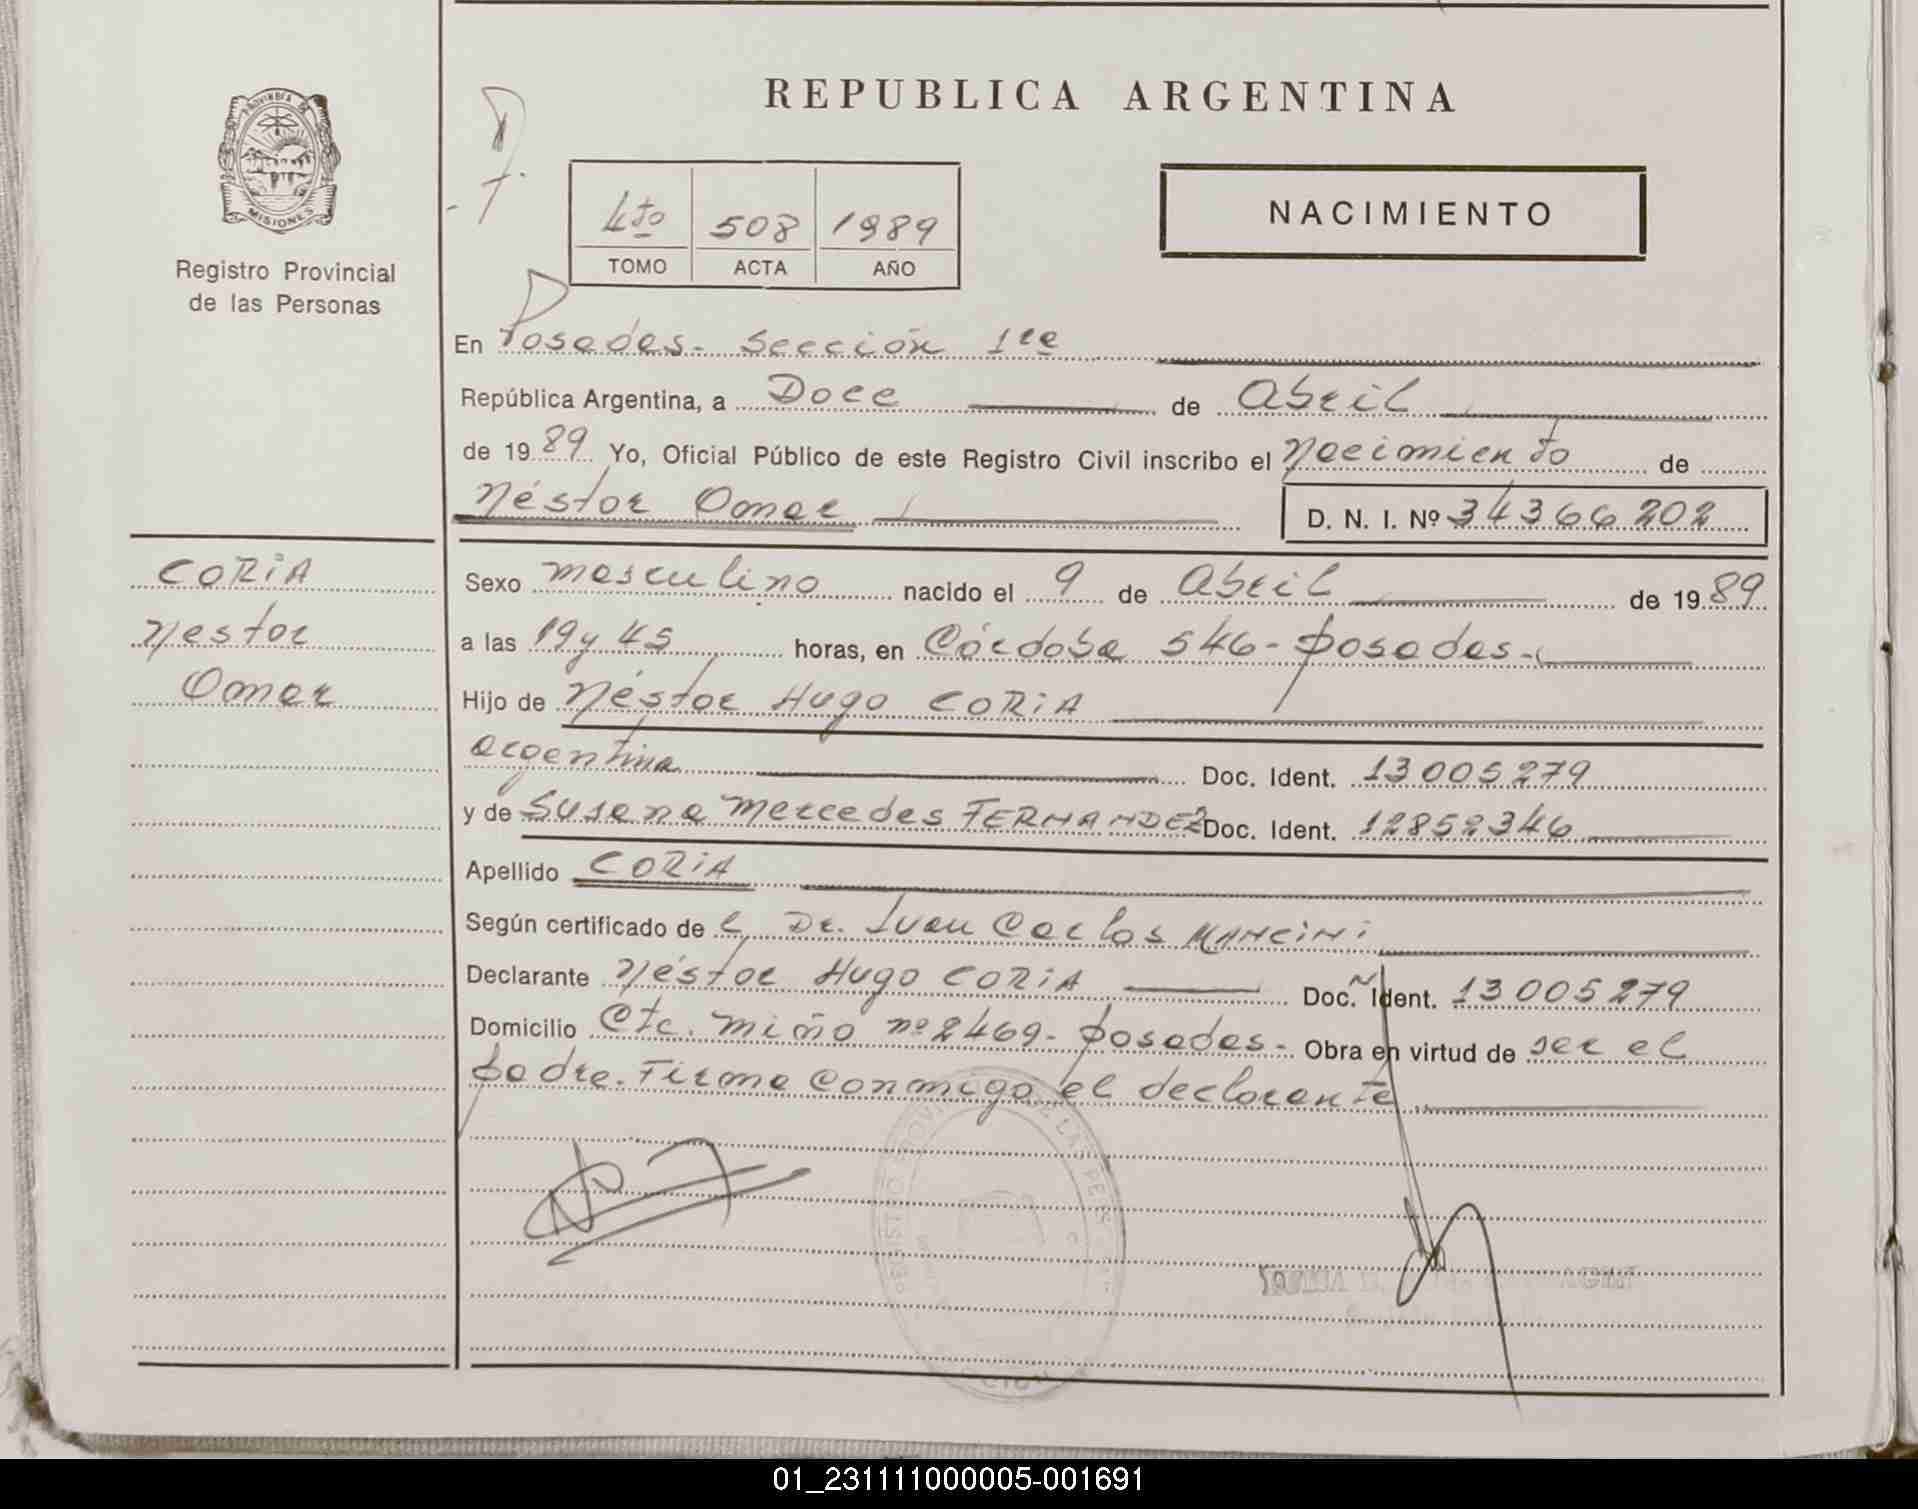 REPUBLICA ARGENTINA
PROVINCIA DE
MISIONES
Registro Provincial
de las Personas
4to 508 1989
TOMO ACTA AÑO
NACIMIENTO
En Posadas - Sección 1ra
República Argentina, a Doce de Abril
de 1989 Yo, Oficial Público de este Registro Civil inscribo el Nacimiento de
Néstor Omar D. N. I. Nº 34366202
CORIA
Nestor
Omar
Sexo masculino nacido el 9 de Abril de 1989
a las 19 y 45 horas, en Córdoba 546 - Posadas -
Hijo de Néstor Hugo CORIA
argentina Doc. Ident. 13005279
y de Susana Mercedes FERNANDEZ Doc. Ident. 12852346
Apellido CORIA
Según certificado de l Dr. Juan Carlos MANCINI
Declarante Néstor Hugo CORIA Doc. Ident. 13005279
Domicilio Ctc. Miño nº 2469 - Posadas - Obra en virtud de ser el
padre. Firma conmigo el declarante
01_231111000005-001691